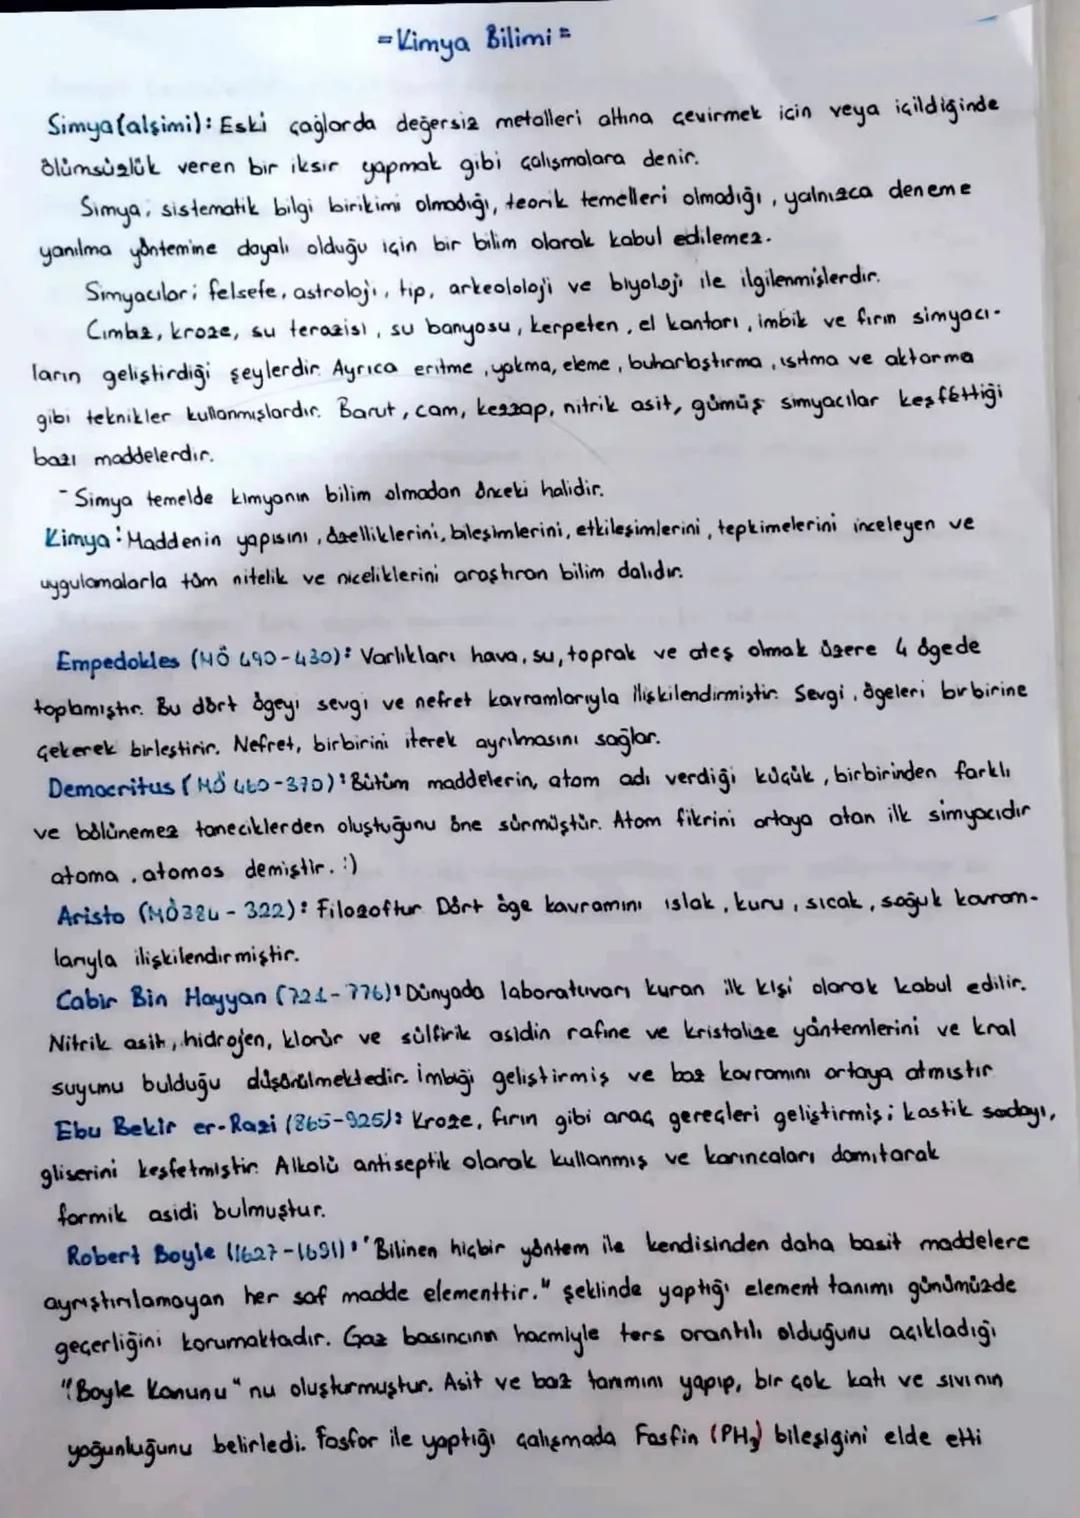 =Kimya Bilimi=
Simya(alşimi): Eski çağlarda değersiz metalleri altına çevirmek için veya içildiğinde
ölümsüzlük veren bir iksir yapmak gibi çalışmalara denir.
Simya, sistematik bilgi birikimi olmadığı, teorik temelleri olmadığı, yalnızca deneme
yanılma yöntemine dayalı olduğu için bir bilim olarak kabul edilemez.
Simyacılar; felsefe, astroloji, tıp, arkeololoji ve biyoloji ile ilgilenmişlerdir.
Cımbız, kroze, su terazisi, su banyosu, kerpeten, el kantarı, imbik ve fırın simyacı-
ların geliştirdiği şeylerdir. Ayrıca eritme, yakma, eleme, buharlaştırma, ısıtma ve aktarma
gibi teknikler kullanmışlardır. Barut, cam, kezzap, nitrik asit, gümüş simyacılar keşfettiği
bazı maddelerdir.
- Simya temelde kimyanın bilim olmadan önceki halidir.
Kimya: Maddenin yapısını, özelliklerini, bileşimlerini, etkileşimlerini, tepkimelerini inceleyen ve
uygulamalarla tüm nitelik ve niceliklerini araştıran bilim dalıdır.
Empedokles (MÖ 490-430): Varlıkları hava, su, toprak ve ateş olmak üzere 4 ögede
toplamıştır. Bu dört ögeyi sevgi ve nefret kavramlarıyla ilişkilendirmiştir. Sevgi, ögeleri birbirine
çekerek birleştirir. Nefret, birbirini iterek ayrılmasını sağlar.
Democritus (MÖ 460-370): Bütüm maddelerin, atom adı verdiği küçük, birbirinden farklı
ve bölünemez taneciklerden oluştuğunu öne sürmüştür. Atom fikrini ortaya atan ilk simyacıdır
atoma, atomos demiştir. :)
Aristo (MÖ384 - 322): Filozoftur Dört öge kavramını ıslak, kuru, sıcak, soğuk kavram-
larıyla ilişkilendirmiştir.
Cabir Bin Hayyan (721-776): Dünyada laboratuvarı kuran ilk kişi olarak kabul edilir.
Nitrik asit, hidrojen, klorür ve sülfirik asidin rafine ve kristalize yöntemlerini ve kral
suyunu bulduğu düşünülmektedir. İmbiği geliştirmiş ve baz kavramını ortaya atmıştır
Ebu Bekir er-Razi (865-925): Kroze, fırın gibi araç gereçleri geliştirmiş; kastik sodayı,
gliserini keşfetmiştir. Alkolü antiseptik olarak kullanmış ve karıncaları damıtarak
formik asidi bulmuştur.
Robert Boyle (1627-1691): "Bilinen hiçbir yöntem ile kendisinden daha basit maddelere
ayrıştırılamayan her saf madde elementtir." şeklinde yaptığı element tanımı günümüzde
geçerliğini korumaktadır. Gaz basıncının hacmiyle ters orantılı olduğunu açıkladığı
"Boyle Kanunu" nu oluşturmuştur. Asit ve baz tanımını yapıp, bir çok katı ve sıvının
yoğunluğunu belirledi. Fosfor ile yaptığı çalışmada Fosfin (PH3) bileşiğini elde etti